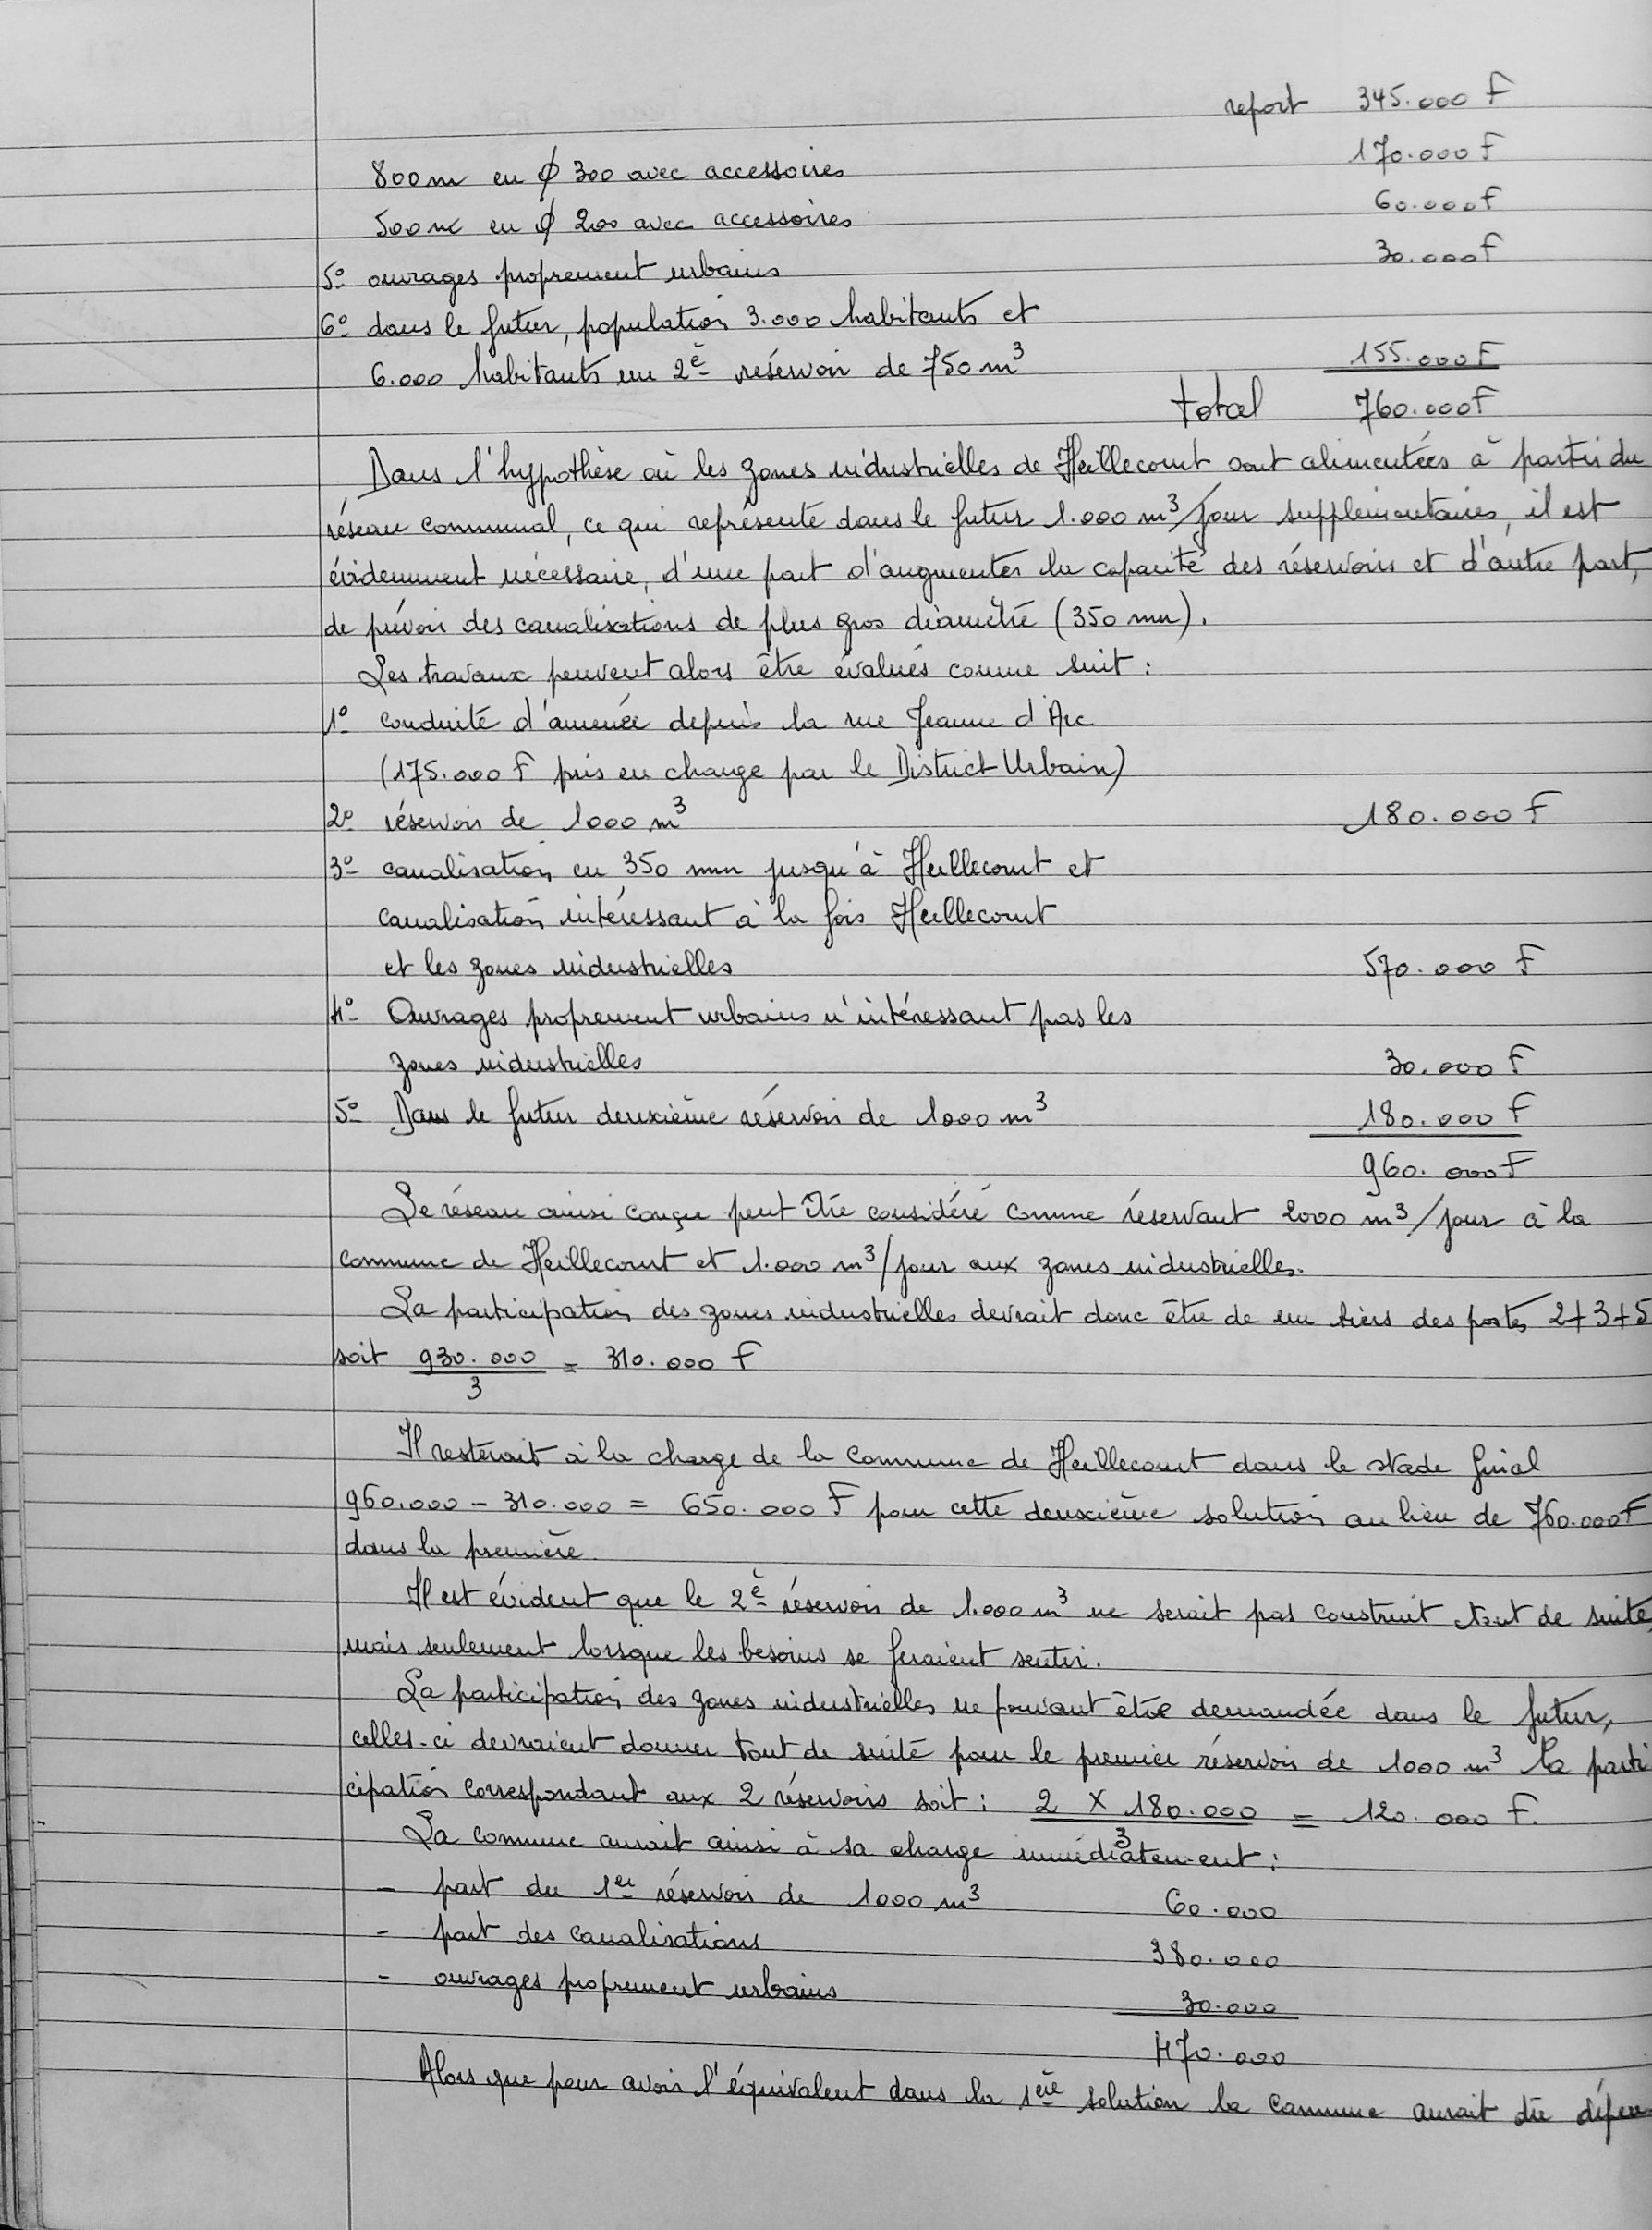 report 345.000 F
800 m en ϕ 300 avec accessoires 170.000 F
500 m en ϕ 200 avec accessoires 60.000 F
5º ouvrages proprement urbains 30.000 F
6º dans le futur, population 3.000 habitants et
6.000 habitants un 2è réservoir de 750 m³ 155.000 F
total 760.000 F
Dans l'hypothèse où les zones industrielles de Heillecourt sont alimentées à partir du
réseau communal, ce qui représente dans le futur 1.000 m³/jour supplémentaires, il est
évidemment nécessaire, d'une part d'augmenter la capacité des réservoirs et d'autre part,
de prévoir des canalisations de plus gros diamètre (350 mm).
Les travaux peuvent alors être évalués comme suit :
1º conduite d'amenée depuis la rue Jeanne d'Arc
(175.000 F pris en charge par le District Urbain)
2º réservoir de 1000 m³ 180.000 F
3º canalisation en 350 mm jusqu'à Heillecourt et
canalisation intéressant à la fois Heillecourt
et les zones industrielles 570.000 F
4º Ouvrages proprement urbains n'intéressant pas les
zones industrielles 30.000 F
5º Dans le futur deuxième réservoir de 1000 m³ 180.000 F
960.000 F
Le réseau ainsi conçu peut être considéré comme réservant 2000 m³/jour à la
commune de Heillecourt et 1.000 m³/jour aux zones industrielles.
La participation des zones industrielles devrait donc être de un tiers des postes 2+3+5
soit 930.000 = 310.000 F
3
Il resterait à la charge de la Commune de Heillecourt dans le stade final
960.000 - 310.000 = 650.000 F pour cette deuxième solution au lieu de 760.000 F
dans la première.
Il est évident que le 2è réservoir de 1.000 m³ ne serait pas construit tout de suite,
mais seulement lorsque les besoins se feraient sentir.
La participation des zones industrielles ne pouvant être demandée dans le futur,
celles-ci devraient donner tout de suite pour le premier réservoir de 1000 m³ la parti
cipation correspondant aux 2 réservoirs soit : 2 X 180.000 = 120.000 F.
3
La commune aurait ainsi à sa charge immédiatement :
- part du 1er réservoir de 1000 m³ 60.000
- part des canalisations 380.000
- ouvrages proprement urbains 30.000
470.000
Alors que pour avoir l'équivalent dans la 1ère solution la commune aurait dû dépen